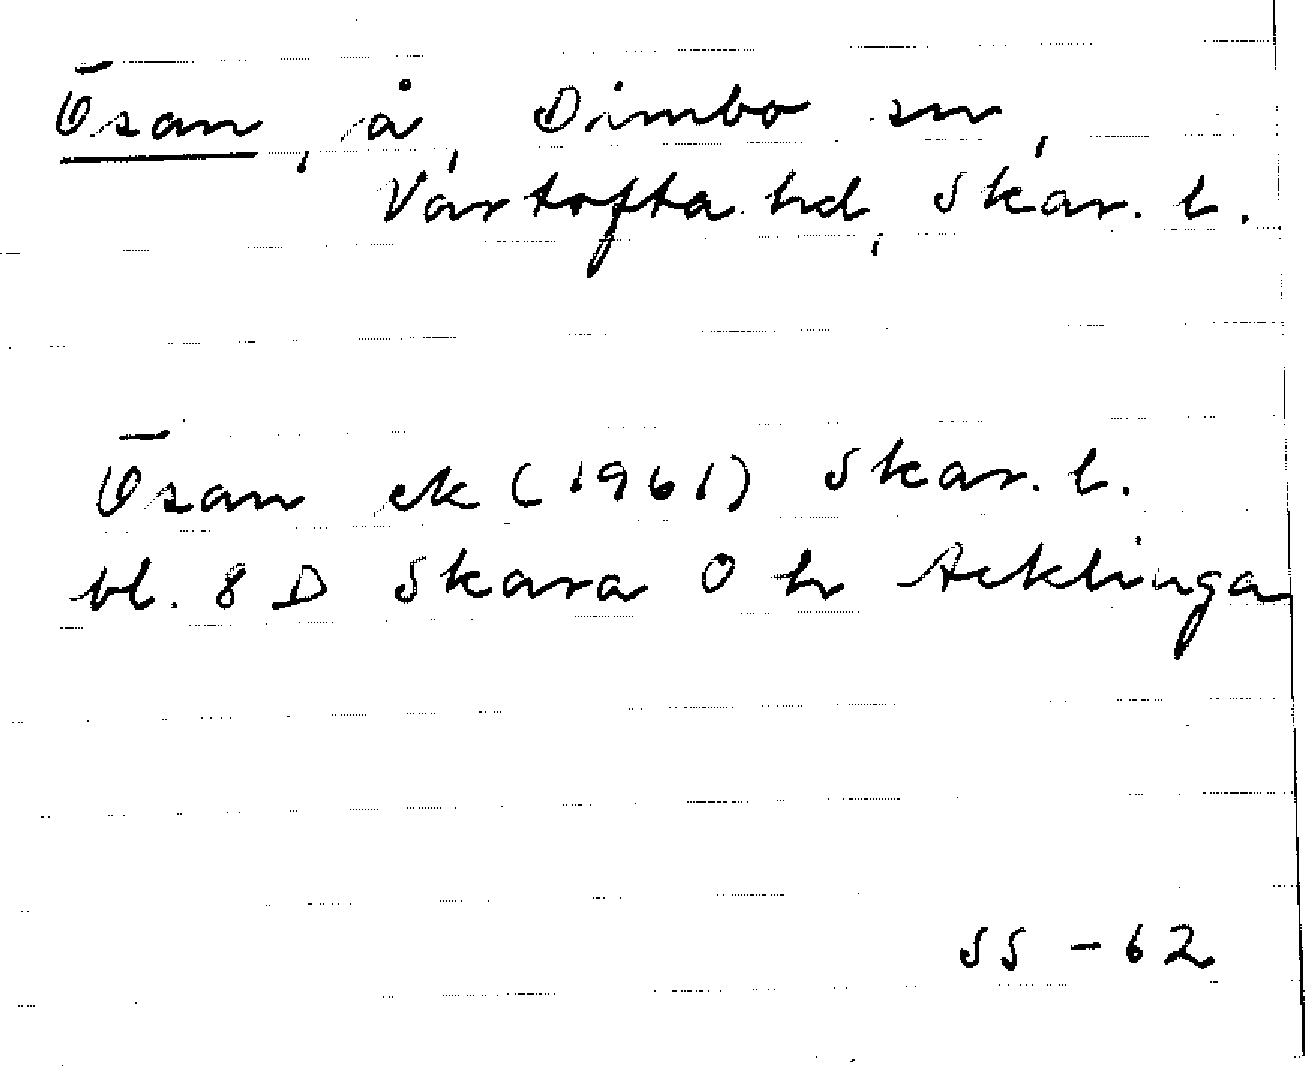 Ösan, å, Dimbo sn,
Vartofta hd, Skar. l.
Ösan ek (1961) Skar. l.
bl. 8 D Skara O h Acklinga
SS - 62